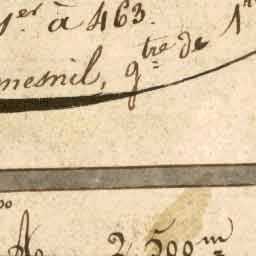 1er à 463.
mesnil, gtre de 1r
2,500m